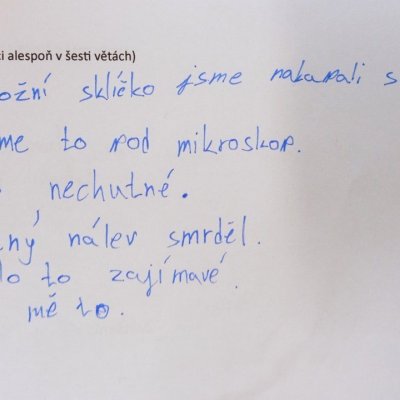 i alespoň v šesti větách)
ožní sklíčko jsme nakapali s
me to pod mikroskop.
nechutné.
ný nálev smrděl.
lo to zajímavé.
mě to.